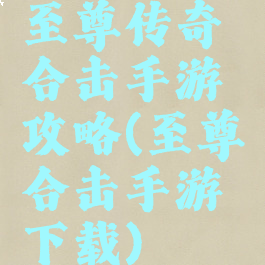 至尊传奇
合击手游
攻略(至尊
合击手游
下载)